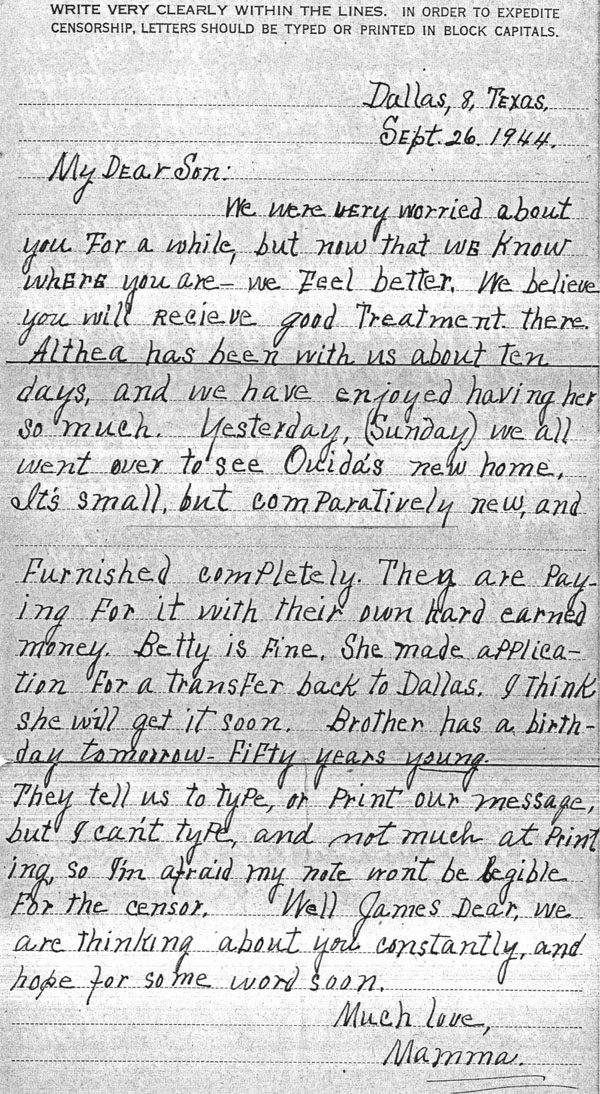 WRITE VERY CLEARLY WITHIN THE LINES. IN ORDER TO EXPEDITE
CENSORSHIP, LETTERS SHOULD BE TYPED OR PRINTED IN BLOCK CAPITALS.
Dallas, 8, Texas,
Sept. 26 1944.
My Dear Son:
We were very worried about
you For a while, but now that we know
where you are - we Feel better. We believe
you will Recieve good Treatment there.
Althea has been with us about Ten
days, and we have enjoyed having her
so much. Yesterday, (Sunday) we all
went over to see Ouida's new home,
It's small, but comparatively new, and
Furnished completely. They are Pay-
ing For it with their own hard earned
money. Betty is Fine. She made applica-
tion For a transfer back to Dallas. I think
she will get it soon. Brother has a birth-
day tomorrow - Fifty years young.
They tell us to type, or Print our message,
but I can't type, and not much at Print
ing, so I'm afraid my note won't be legible
For the censor. Well James Dear, we
are thinking about you constantly, and
hope for some word soon.
Much love,
Mamma.